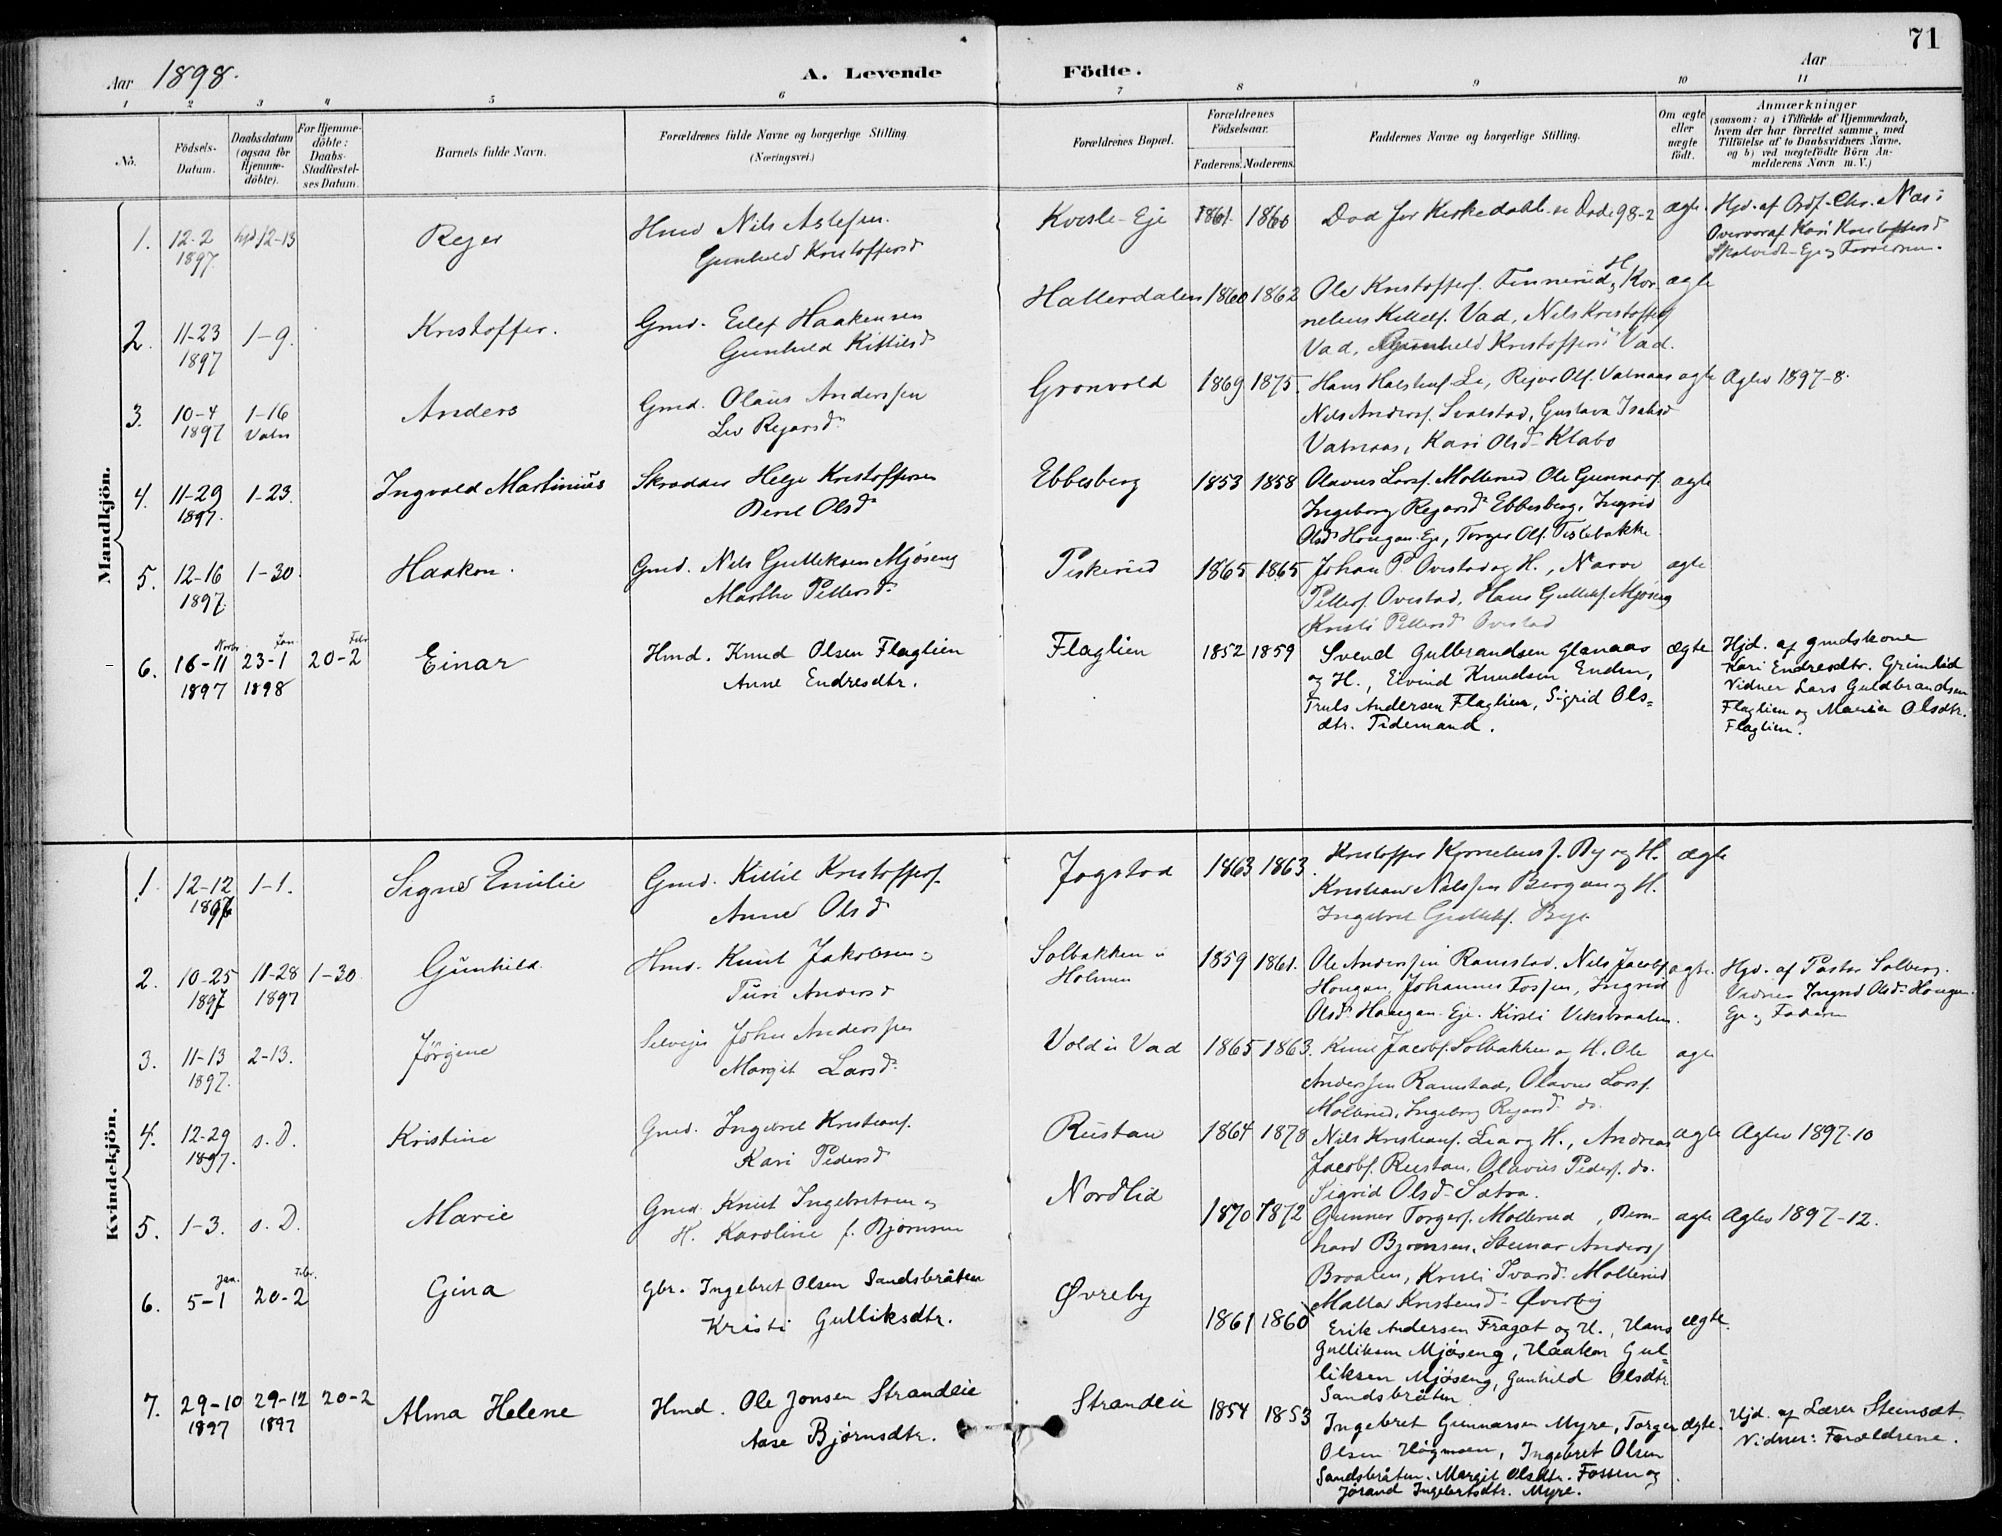 71
Aar 1898.
A. Levende Födte.
Aar
1 2 3 4 5 6 7 8 9 10 11
No.
Födsels-Datum.
Daabsdatum (ogsaa for Hjemme-döbte).
For Hjemme-döbte: Daabs-Stadfæstel-ses Datum.
Barnets fulde Navn.
Forældrenes fulde Navne og borgerlige Stilling (Næringsvei.)
Forældrenes Bopæl.
Forældrenes Födselsaar.
Faderens. Moderens.
Faddernes Navne og borgerlige Stilling.
Om ægte eller uægte födt.
Anmærkninger
(saasom: a) i Tilfælde af Hjemmedaab,
hvem der har forrettet samme, med
Tilföielse af to Daabsvidners Navne,
og b) ved uægtefödte Börn An-
melderens Navn m. V.)
Mandkjön.
1. 12-2 1897. hjd 12-13
Rejer
Hmd Nils Aslefsen.
Gunhild Kristoffersd
Kvisle-Eje 1861. 1860
Død før Kirkedaab. se Døde 98-2
ægte
Hjd. af Ordf. Chr. Næs i
Overvær af Kari Kristoffersd
2. 11-23 1897 1-9.
Kristoffer.
Gmd. Eilef Haakensen
Gunhild Kittilsd
Hallerdalen 1860 1862
Ole Kristoffers. Finnerud, Kor-
nelius Kittels. Vad, Nils Kristoffers
Vad, Gunhild Kristoffersd Vad.
ægte
3. 10-4 1897 1-16
Anders
Gmd. Olaus Anderssen
Liv Rejarsd
Grønvold 1869 1875.
Hans Halstens. Li, Rejar Ols. Valnaas
Nils Anders. Svalstad, Gustava Isaksd
Valnaas, Kari Olsd Klabo
ægte
Aglev 1897-8.
4. 11-29 1897. 1-23.
Ingvald Martinius
Skrædder Helge Kristoffersen
Beret Olsd
Ebbesberg 1853 1858
Olavus Lars. Møllerud Ole Gunnars.
Ingeborg Rejarsd Ebbesberg, Ingrid
Olsd Hougan Eje, Torger Ols. Tislebakke
ægte
5. 12-16 1897. 1-30.
Haakon.
Gmd. Nils Gulliksen Mjøseng
Marthe Pettersd
Piskerud 1865 1865
Johan P. Ovestad og H., Narve
Petters. Ovestad, Hans Gulliks. Mjøseng
Kristi Pettersd Ovestad
ægte
6. Novbr. 16-11 1897 Jan. 23-1 1898 Febr 20-2
Einar
Hmd. Knud Olsen Flaglien
Anne Endresdtr.
Flaglien 1852 1859
Svend Gulbrandsen Glanaas
og H., Eivind Knudsen Enden,
Truls Andersen Flaglien, Sigrid Ols=
dtr. Tidemand.
ægte
Hjd. af gmdskone
Kari Endresdtr. Grimlid
Vidner Lars Guldbrandsen
Flaglien og Maria Olsdtr.
Flaglien.
Kvindekjön.
1. 12-12 1897 1-1.
Signe Emilie
Gmd. Kittil Kristoffers.
Anne Olsd
Jogstad 1863 1863
Kristoffer Kornelius s. By og H.
Kristian Nilssen Bergan og H.
Ingebret Gulliks. Bye
ægte
2. 10-25 1897 11-28 1897 1-30.
Gunhild
Hmd. Knut Jakobsen
Turi Andersd
Solbakken u Holmen 1859 1861.
Ole Anderssen Ramstad, Nils Jacobs.
Hougan, Johannes Fossen, Ingrid
Olsd Hougan Eje. Kirsti Viksbraaten.
ægte.
Hjd. af Pastor Solberg.
Vidner Ingrid Olsd Hougan
Eje og Faderen
3. 11-13 1897. 2-13.
Jørgine
Selvejer John Anderssen
Margit Larsd
Vold u Vad 1865 1863.
Knut Jacobs. Solbakken og H. Ole
Anderssen Ramstad, Olavus Lars.
Møllerud, Ingeborg Rejarsd do.
ægte
4. 12-29 1897. s. D.
Kristine
Gmd. Ingebret Kristians.
Kari Pedersd
Rustan 1864 1878
Nils Kristians. Lia og H., Andreas
Jacobs. Rustan, Olavus Peders. do.
Sigrid Olsd Sætra.
ægte
Aglev 1897-10
5. 1-3. s. D.
Marie
Gmd. Knut Ingebretsen og
H. Karoline f. Bjørnsen
Nordlid 1870 1872
Gunner Torgers. Møllerud, Bern-
hard Bjørnsen, Steinar Anders.
Braaten, Kristi Ivarsd Møllerud
Mattea Kristensd Øvreby
ægte
Aglev 1897-12.
6. Jan. 5-1 Febr. 20-2
Gina
Gbr. Ingebret Olsen Sandsbråten
Kristi Gulliksdtr.
Øvreby 1861 1860
Erik Andersen Fragot og H., Hans
Gulliksen Mjøseng, Haakon Gul=
liksen Mjøseng, Gunhild Olsdtr.
Sandsbråten
ægte.
7. 29-10 1897 29-12 1897 20-2
Alma Helene
Hmd. Ole Jonsen Strandeie
Aase Bjørnsdtr.
Strandeie 1854 1853
Ingebret Gunnarsen Myre, Torger
Olsen Hågmoen, Ingebret Olsen
Sandsbråten, Margit Olsdtr. Fossen og
Jørand Ingebertsdtr. Myre.
ægte.
Hjd. af Lærer Steinsæt.
Vidner: Forældrene.